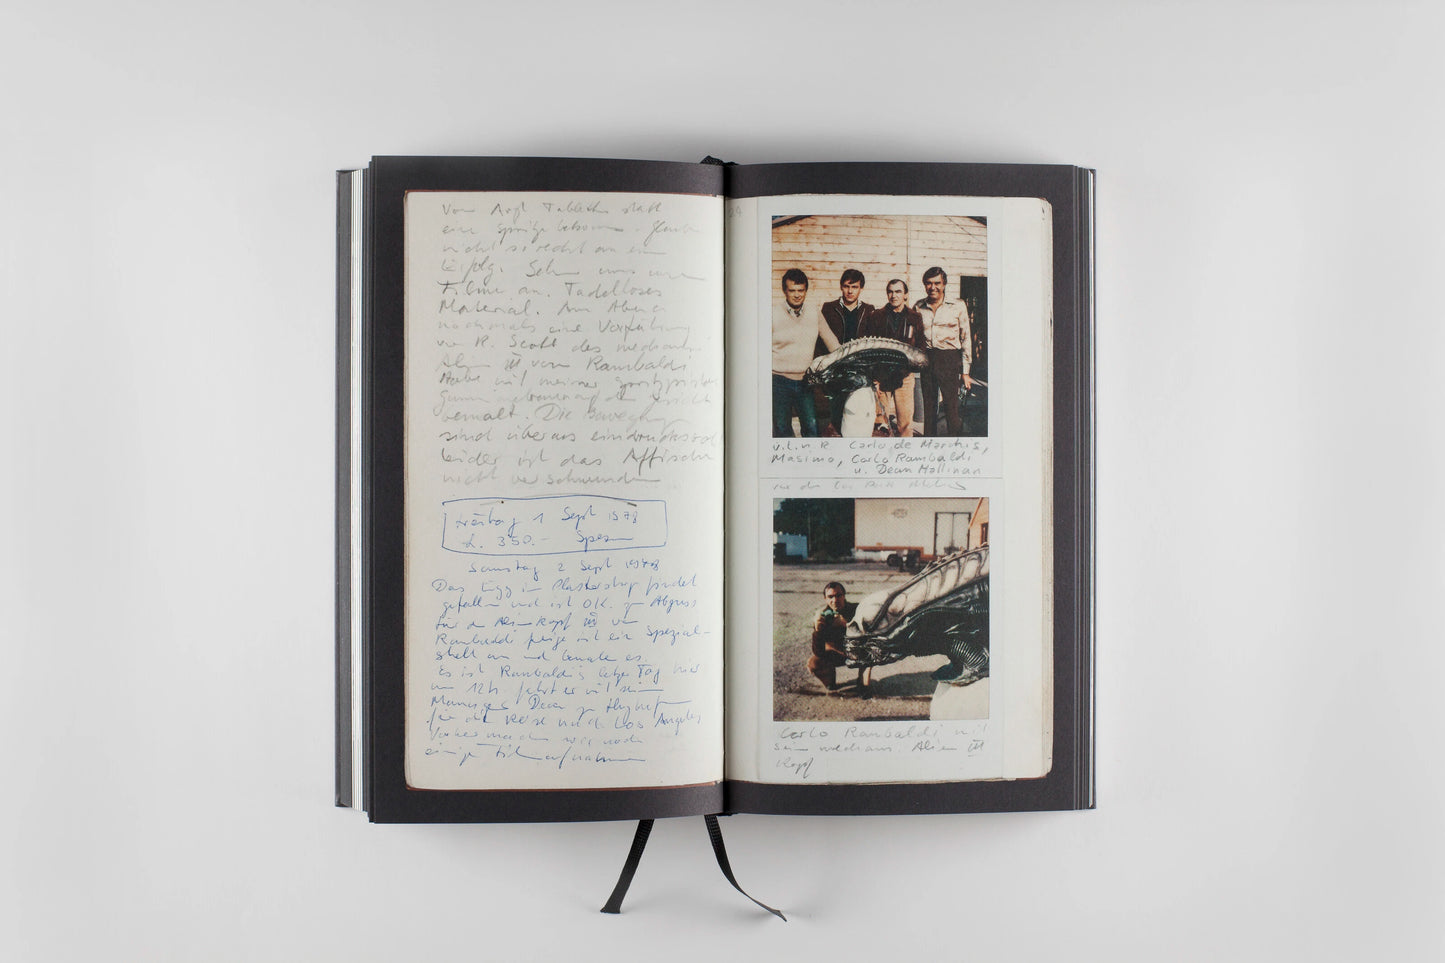 Vom Arzt Tabletten statt
eine Spritze bekommen. Glaube
nicht so recht an ein
Erfolg. Sehn uns
Filme an. Tadelloses
Material. Am Abend
nochmals eine Vorführung
von R. Scott des mechan.
Alien III von Rambaldi
Habe mit meiner Spritzpistole
bemalt. Die Bewegung
sind überaus eindrucksvoll
leider ist das Äffische
nicht verschwunden
Freitag 1 Sept 1978
£. 350.- Spesen
Samstag 2 Sept 1978
Das Egg im Plastershop findet
gefallen und ist OK. zum Abguss
für den Alienkopf III von
Rambaldi fertige ich ein Spezial-
an und bemale es.
Es ist Rambaldis letzter Tag hier
um 12 h. fährt er mit seinem
Manager Dean zum Flughafen
für die Reise nach Los Angeles
Vorher machen wir noch
einige Filmaufnahmen
29
v.l.n R Carlo de Marchis,
Masimo, Carlo Rambaldi
u. Dean Hallinan
Carlo Rambaldi mit
sein mechan. Alien III
Kopf